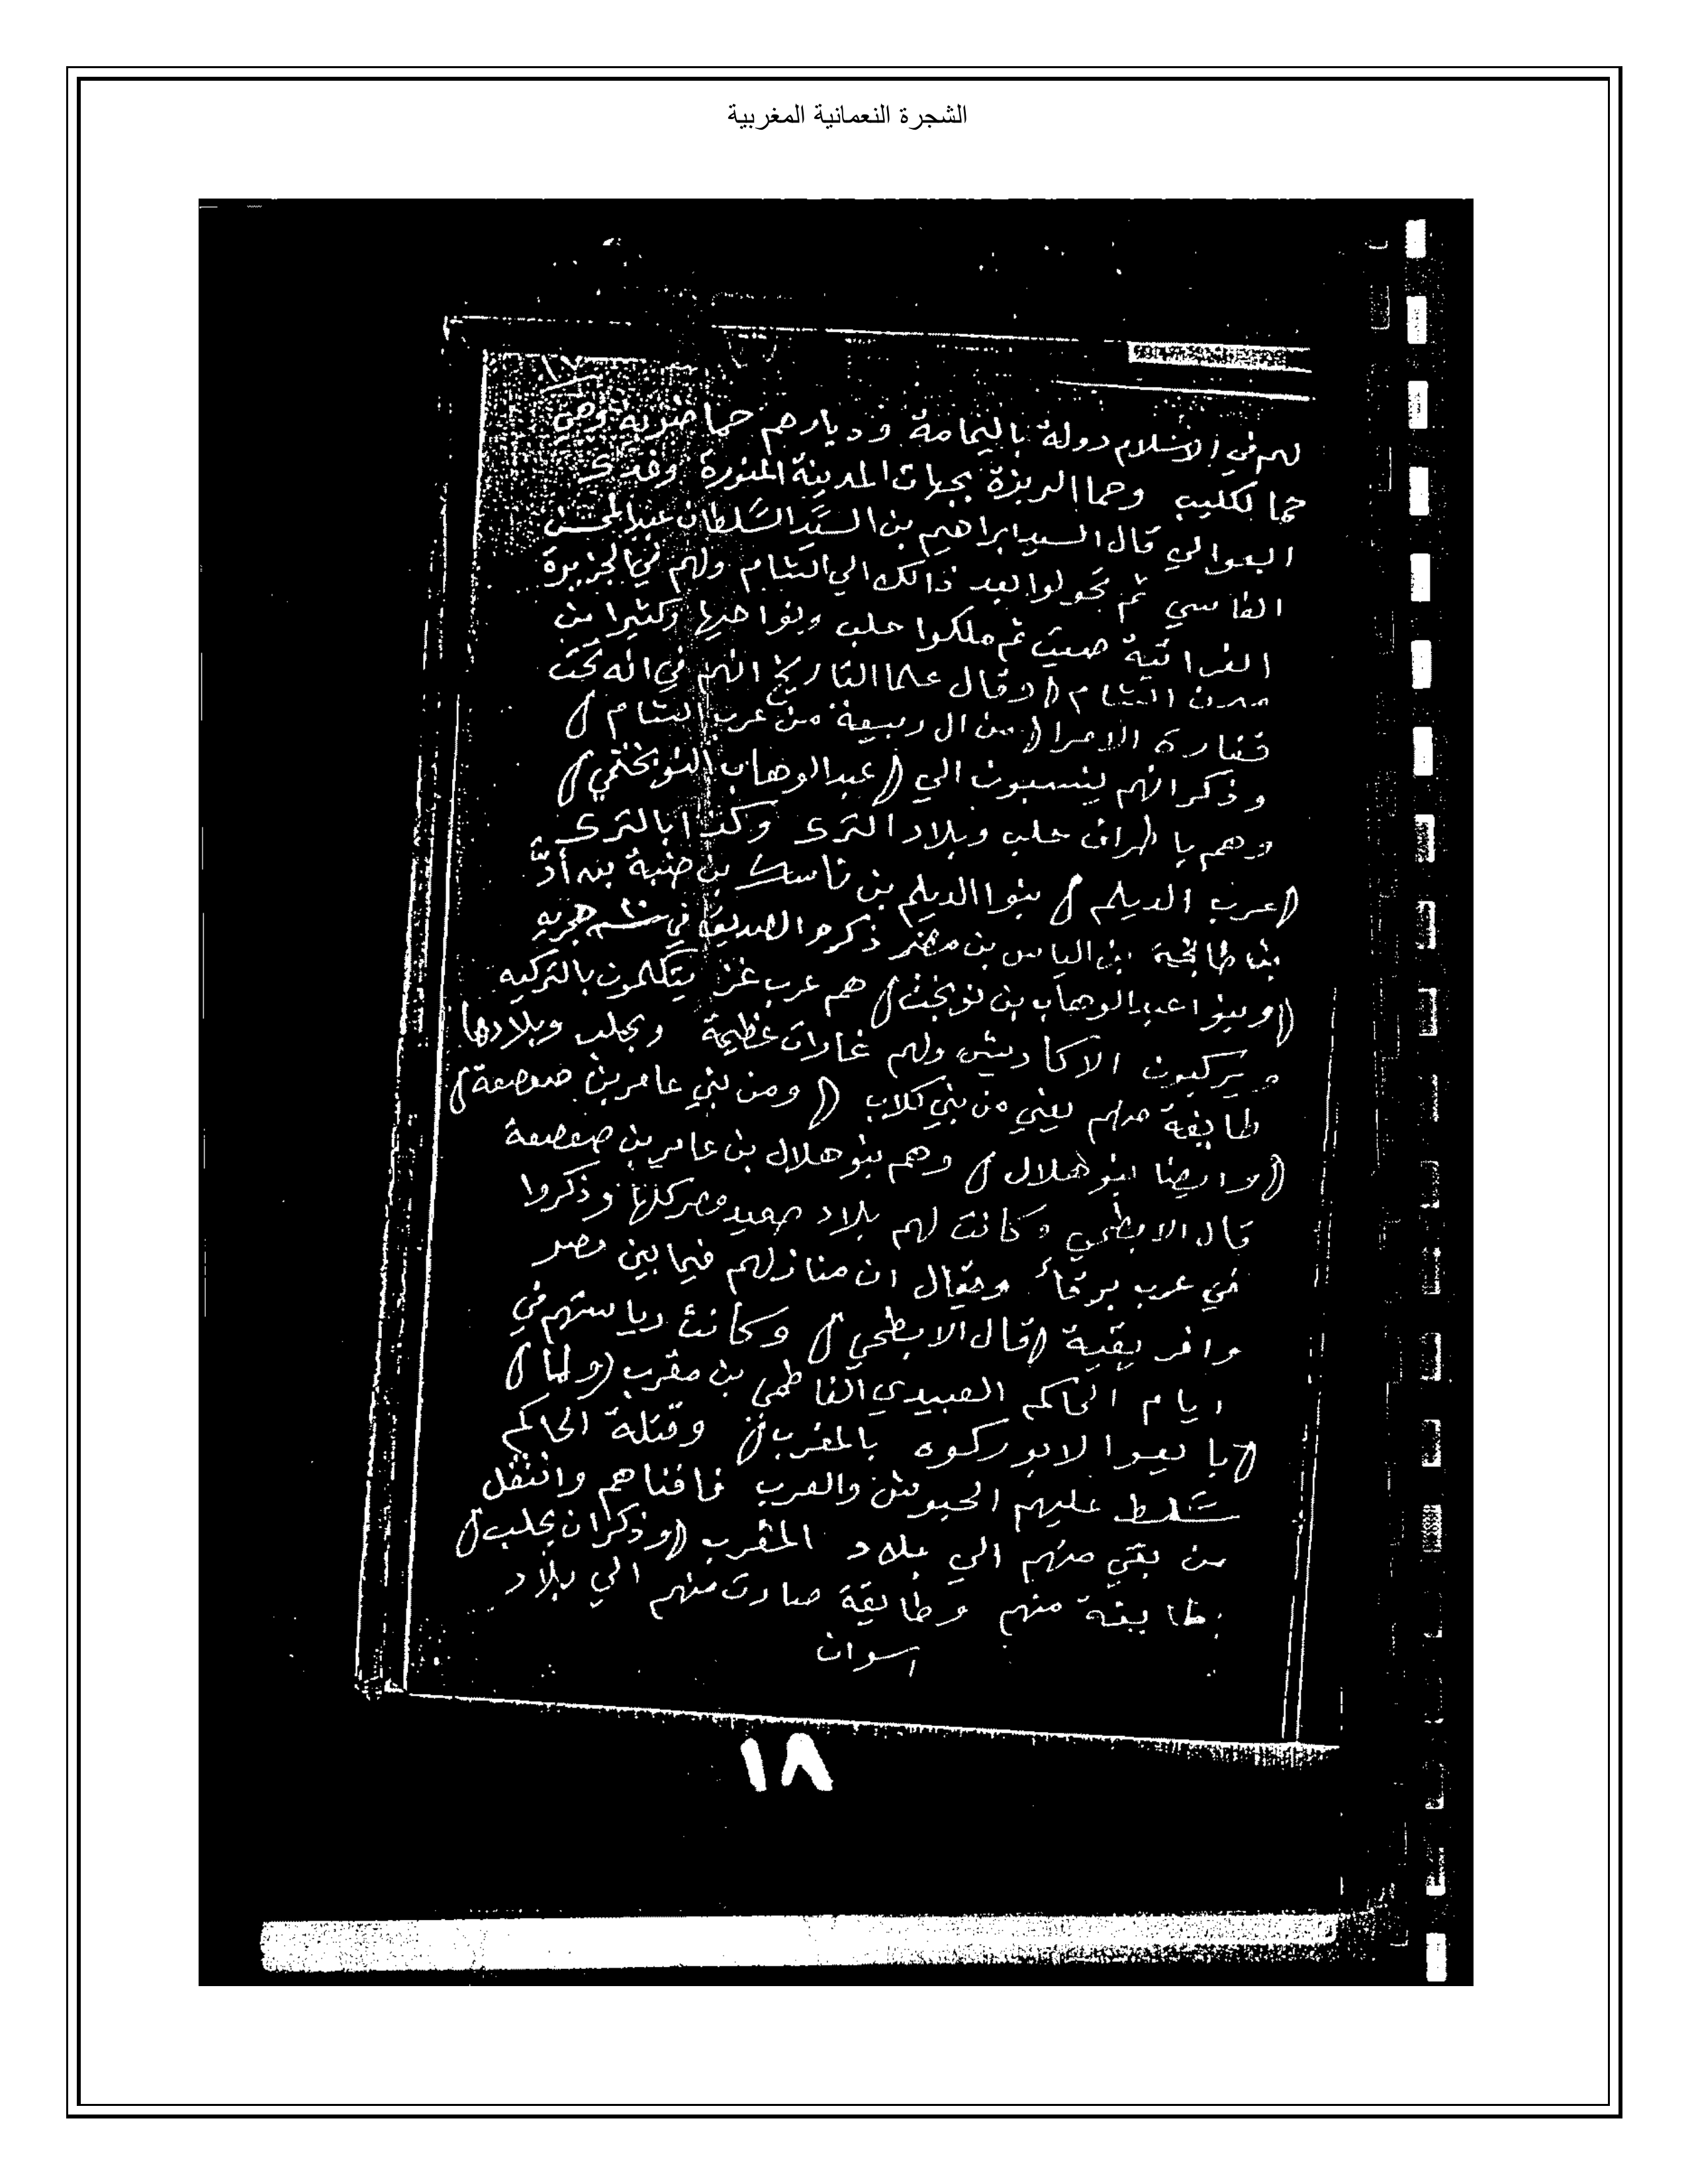 الشجرة النعمانية المغربية
١٧
لهم في الاسلام دولة باليمامة و ديارهم حما ضرية وهي
حما لكليب وحما الربزة بجهات المدينة المنورة وفدك
العوالي قال السيد ابراهيم بن السيد السلطان عبد المحسن
الفاسي ثم تحولوا بعد ذالك الي الشام ولهم في الجزيرة
الفراتية صيت ثم ملكوا حلب ونواحيها وكثيرا من
مدن الشام (وقال علما التاريخ انهم في انه تحت
الامرا (من ال ربيعة من عرب الشام)
و ذكر انهم ينسبون الي (عبد الوهاب النوبختي)
وهم با طراف حلب وبلاد الترك وكدا بالترك
(عرب الديلم) بنوا الديلم بن ناسك بن ضبة بن أدّ
بن طابخة بن الياس بن مضر ذكرهم في هجريه
(وبنوا عبد الوهاب بن نوبخت) هم عرب غز يتكلمون بالتركيه
و يركبون الآكاديش ولهم غارات عظيمة وبحلب وبلادها
طايفة منهم يعني من بني كلاب (ومن بني عامر بن صعصعة)
(وايضا بنو هلال) وهم بنو هلال بن عامر بن صعصعة
قال الابطحي وكانت لهم بلاد صعيد مصر كلها وذكروا
في عرب برقاء ويقال ان منازلهم فيما بين مصر
وافريقية (قال الابطحي) وكانت رياستهم في
ايام الحاكم العبيدي الفاطمي بن مقرب (ولما)
(با يعوا لابو ركوه بالمغرب) وقتلة الحاكم
سَلط عليهم الجيوش والعرب فافناهم وانتقل
من بقي منهم الي بلاد المغرب (وذكر ان بحلب)
طايفة منهم وطايفة صارت منهم الي بلاد
اسوان
١٨